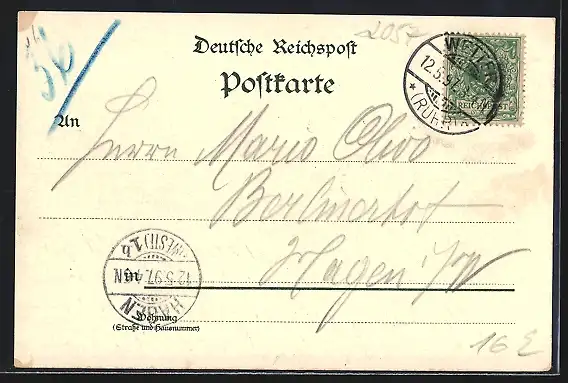 2057
56
Deutsche Reichspost
Postkarte
WETTER
12.5.97.
* (RUHR) *
REICHSPOST
An
Herrn Mario Olivo
Berlinerhof
Hagen i/W
(WESTF.) 1 b
12.5.97.
HAGEN
in
Wohnung
(Straße und Hausnummer)
16 E